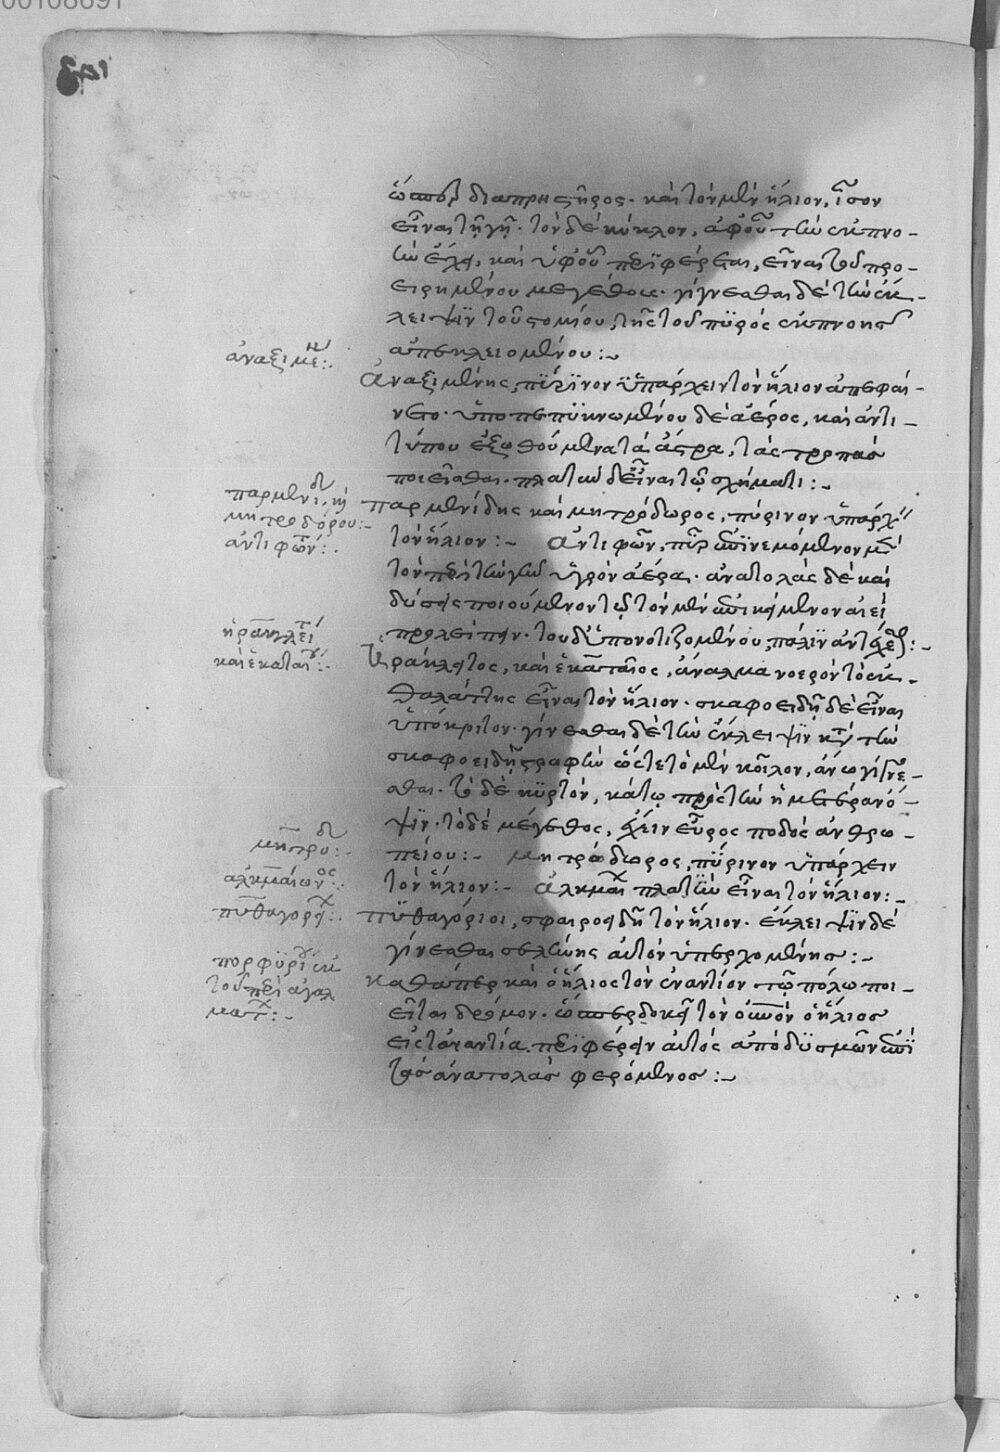 00108691
ὥσπερ διὰ πρηστῆρος· καὶ τὸν μὲν ἥλιον, ἶσον
εἶναι τῇ γῇ· τὸν δὲ κύκλον, ἀφ' οὗ τὴν ἐκπνο-
ὴν ἔχει, καὶ ὑφ' οὗ περιφέρεται, εἶναι τοῦ προ-
ειρημένου μεγέθους· γίγνεσθαι δὲ τὴν ἔκ-
λειψιν τοῦ στομίου, τῆς τοῦ πυρὸς ἐκπνοῆς
ἀποκλειομένου:~
ἀναξιμέν:
Ἀναξιμένης, πύρινον ὑπάρχειν τὸν ἥλιον ἀπεφαί-
νετο· ὑπὸ πεπυκνωμένου δὲ ἀέρος, καὶ ἀντι-
τύπου ἐξωθούμενα τὰ ἄστρα, τὰς τροπὰς
ποιεῖσθαι· πλατὺν δὲ εἶναι τῷ σχήματι:~
παρμενίδ. κὴ
μητροδόρου:~
ἀντιφῶν:
παρμενίδης καὶ μητρόδωρος, πύρινον ὑπάρχειν
τὸν ἥλιον:~ Ἀντιφῶν, πῦρ ἐπινεμόμενον μὲν
τὸν περὶ τὴν γῆν ὑγρὸν ἀέρα· ἀνατολὰς δὲ καὶ
δύσεις ποιούμενον τῷ τὸν μὲν ἐπικαιόμενον αἰεὶ
προλείπειν· τοῦ δ' ὑπονοτιζομένου, πάλιν ἀντέχεσθ:~
ἡρακλεί
καὶ ἑκαταί:~
Ἡράκλειτος, καὶ ἑκαταῖος, ἄναμμα νοερὸν τὸ ἐκ
θαλάττης εἶναι τὸν ἥλιον· σκαφοειδῆ δὲ εἶναι
ὑπόκριτον· γίνεσθαι δὲ τὴν ἔκλειψιν κατὰ τὴν
σκαφοειδῆ στραφὴν ὥστε τὸ μὲν κοῖλον, ἄνω γίνε-
σθαι· τὸ δὲ κυρτὸν, κάτω πρὸς τὴν ἡμετέραν ὄ-
ψιν· τὸ δὲ μέγεθος, ἔχειν εὖρος ποδὸς ἀνθρω-
μητρο δ:~
πείου:~ Μητρόδωρος, πύρινον ὑπάρχειν
ἀλκμαίωνος:
τὸν ἥλιον:~ Ἀλκμαί πλατὺν εἶναι τὸν ἥλιον:~
πυθαγορ:
πυθαγόριοι, σφαιροειδῆ τὸν ἥλιον· ἔκλειψιν δὲ
γίνεσθαι σελήνης αὐτὸν ὑπερχομένης:~
πορφυρί ἐκ
τοῦ περὶ ἀγαλ
ματ:~
καθάπερ καὶ ὁ ἥλιος τὸν ἐναντίον τῷ πόλῳ ποι-
εῖται δρόμον· ὥσπερ δοκεῖ τὸν οὐνον ὁ ἥλιος
εἰς τἀναντία περιφέρειν αὐτὸς ἀπὸ δυσμῶν ἐπὶ
τὰς ἀνατολὰς φερόμενος:~